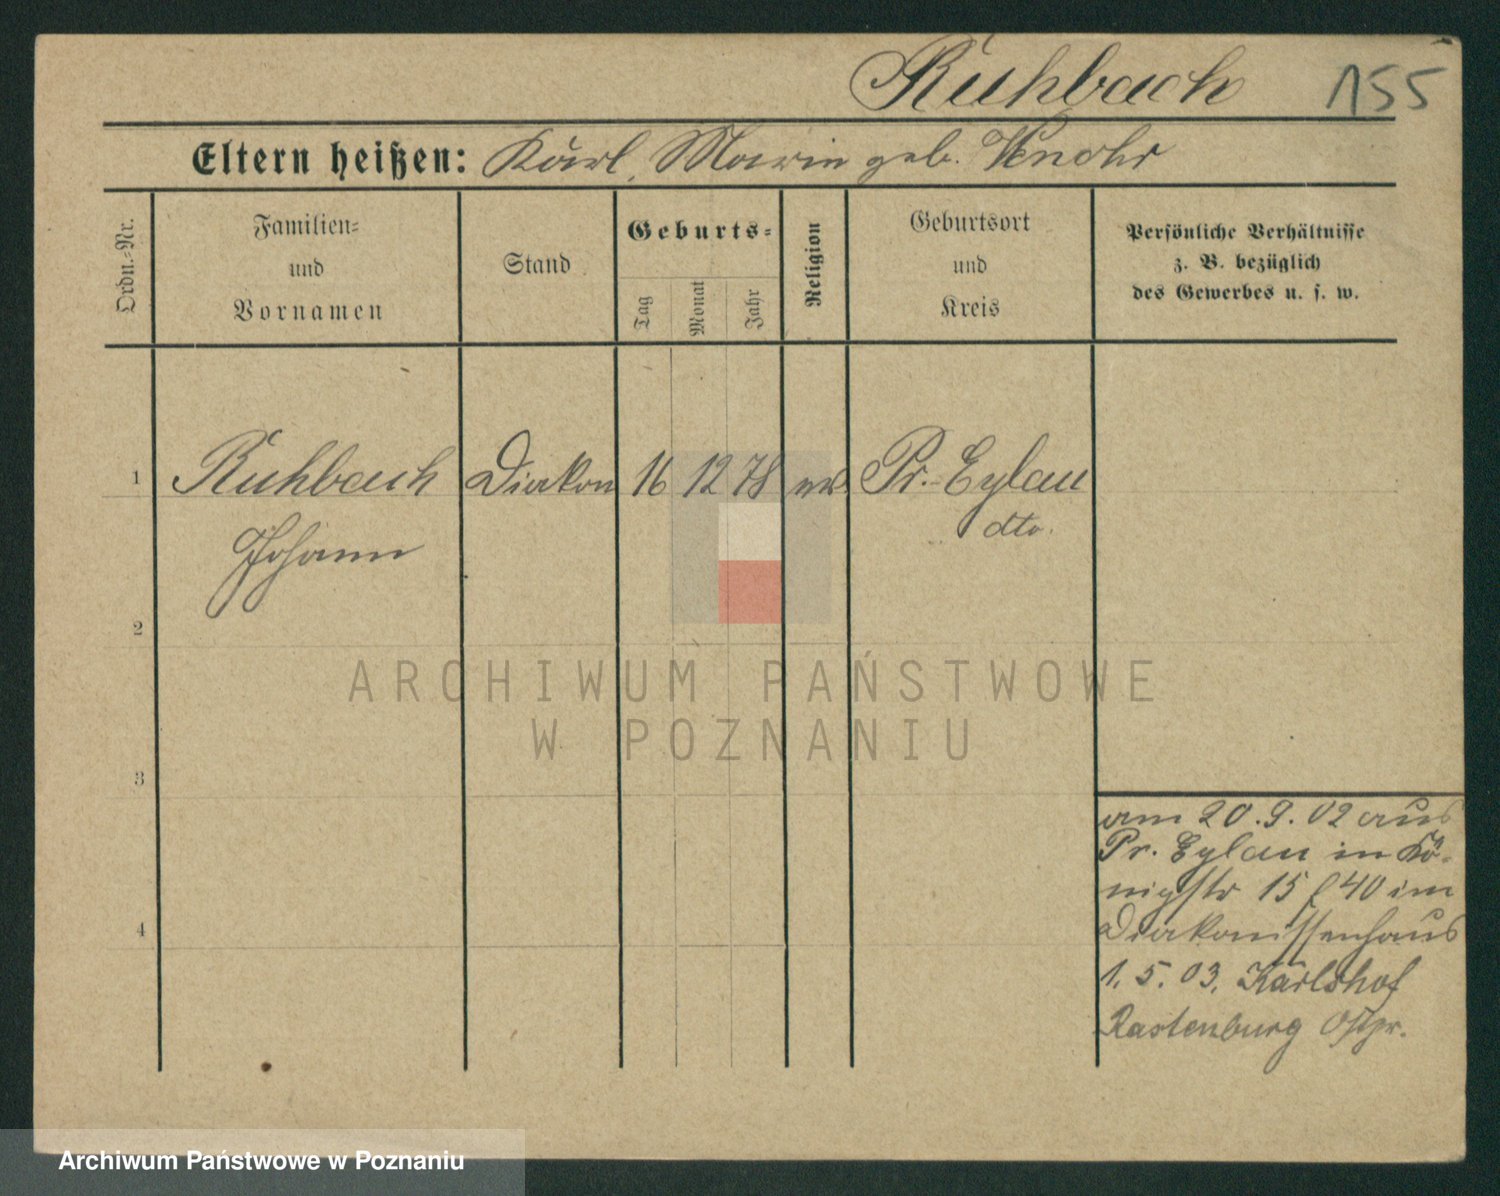 Ruhbach 155
Eltern heißen: Karl, Marie geb. Venohr
Ordn.-Nr.
Familien-
und
Vornamen
Stand
Geburts-
Tag
Monat
Jahr
Religion
Geburtsort
und
Kreis
Persönliche Verhältnisse
z. B. bezüglich
des Gewerbes u. s. w.
1 Ruhbach Diakon 16 12 78 ev. Pr. Eylau
Johann dto.
2
3
4
am 20.9.02 aus
Pr. Eylau in Kö-
nigstr 15 / 40 im
Diakonissenhaus
1.5.03. Karlshof
Rastenburg Ostpr.
ARCHIWUM PAŃSTWOWE
W POZNANIU
Archiwum Państwowe w Poznaniu